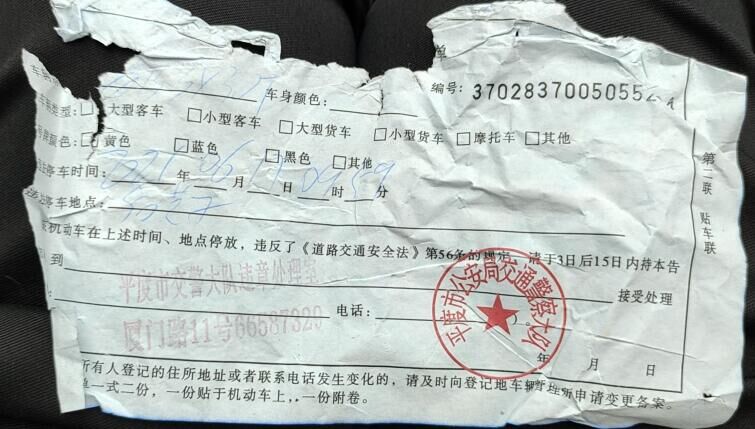 单
车身颜色: 编号: 370283700505522
类型:□大型客车 □小型客车 □大型货车 □小型货车 □摩托车 □其他
颜色:□黄色 ☑蓝色 □黑色 □其他
停车时间: 2021年06月11日09时59分
停车地点:
机动车在上述时间、地点停放,违反了《道路交通安全法》第56条的规定,请于3日后15日内持本告
到 接受处理
平度市交警大队违章处理室
电话: 。
厦门路11号66587329
平度市公安局交通警察大队
年 月 日
所有人登记的住所地址或者联系电话发生变化的,请及时向登记地车辆管理所申请变更备案。
单一式二份,一份贴于机动车上,一份附卷。
第二联 贴车联